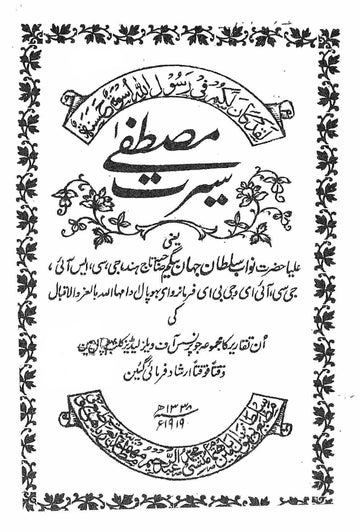 لقد کان لکم فی رسول الله اسوة حسنة
سیرت مصطفیٰ
یعنی
علیا حضرت نواب سلطان جہان بیگم صاحبہ تاج ہند، جی، سی، ایس آئی،
جی سی، آئی ای و جی بی ای فرمانروای بھوپال دامہا اللہ بالعز والاقبال
کی
اُن تقاریر کا مجموعہ جو پرنس آف ویلز لیڈیز کلب بھوپال میں
وقتاً فوقتاً ارشاد فرمائی گئیں
۱۳۳۸ھ
۱۹۱۹ء